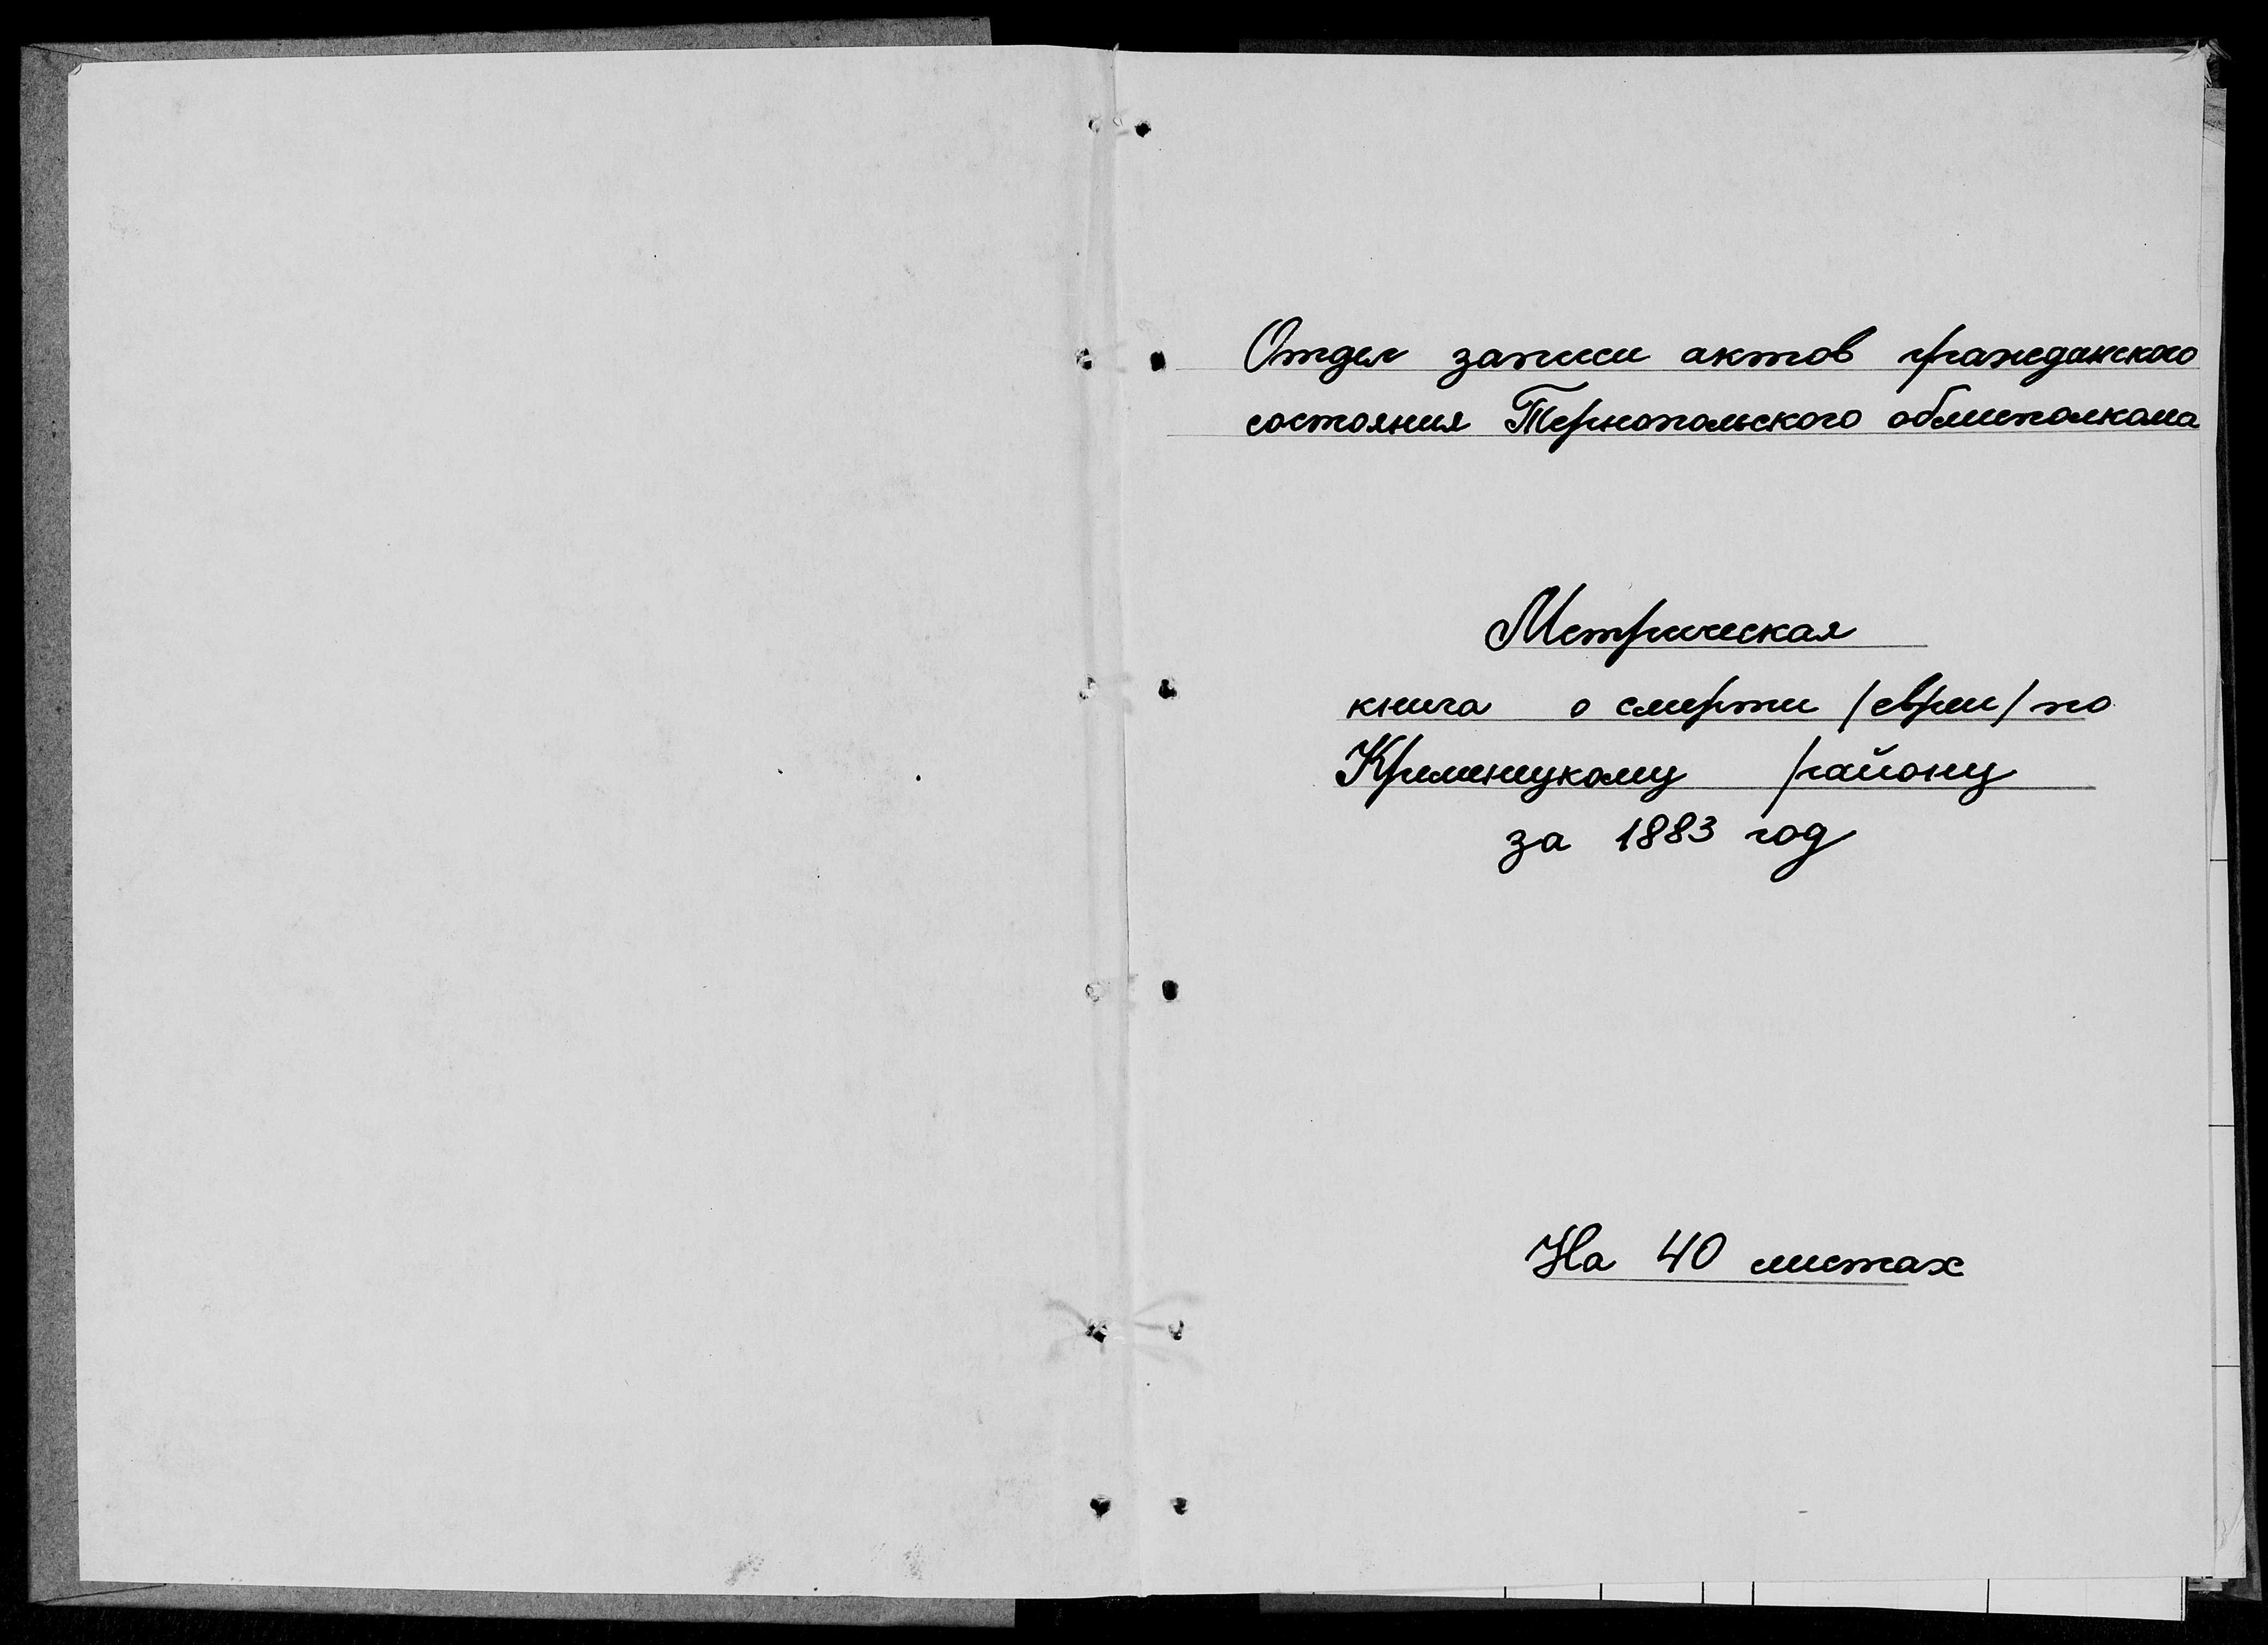 Отдел записи актов гражданского
состояния Тернопольского облисполкома
Метрическая
книга о смерти /евреи/ по
Кременецкому району
за 1883 год
На 40 листах